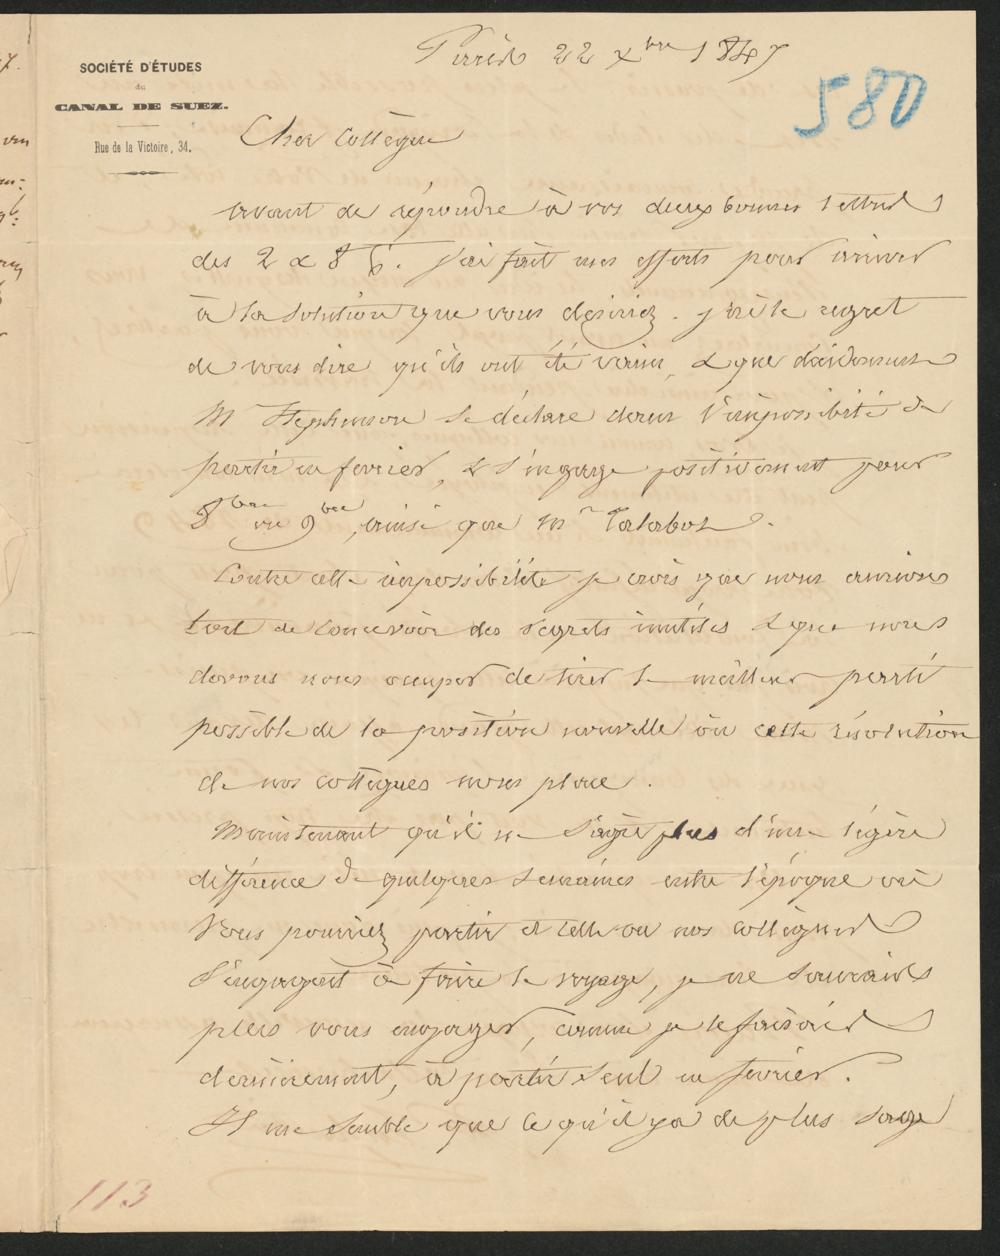 SOCIÉTÉ D'ÉTUDES
du
CANAL DE SUEZ.
Rue de la Victoire, 34.
Paris 22 Xbre 1847
580
Cher Collègue
avant de répondre à vos deux bonnes lettres
des 2 & 8 j'ai fait mes efforts pour arriver
à la solution que vous désiriez. j'ai le regret
de vous dire qu'ils ont été vains, & que décidément
M Stephenson se déclare dans l'impossibilité de
partir en fevrier, & s'engage positivement pour
8bre ou 9bre, ainsi que Mr Talabot.
Contre cette impossibilité je crois que nous aurions
tort de concevoir des regrets inutiles & que nous
devons nous occuper de tirer le meilleur parti
possible de la position nouvelle où cette résolution
de nos collègues nous place.
Maintenant qu'il ne s'agit plus d'une légère
différence de quelques semaines entre l'époque où
Vous pourriez partir et celle où nos collègues
s'engagent à faire le voyage, je ne saurais
plus vous engager, comme je le faisais
dernièrement, à partir seul en février.
Il me semble que ce qu'il y a de plus sage
113